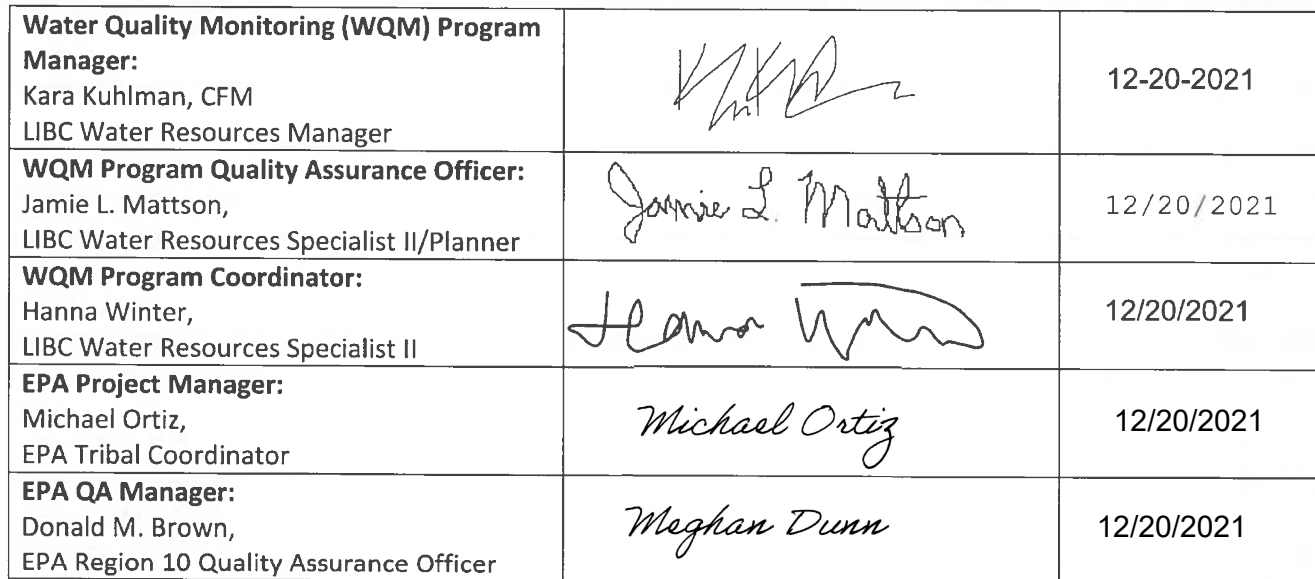 Water Quality Monitoring (WQM) Program
Manager:
Kara Kuhlman, CFM
LIBC Water Resources Manager
12-20-2021
WQM Program Quality Assurance Officer:
Jamie L. Mattson,
LIBC Water Resources Specialist II/Planner
Jamie L. Mattson
12/20/2021
WQM Program Coordinator:
Hanna Winter,
LIBC Water Resources Specialist II
12/20/2021
EPA Project Manager:
Michael Ortiz,
EPA Tribal Coordinator
Michael Ortiz
12/20/2021
EPA QA Manager:
Donald M. Brown,
EPA Region 10 Quality Assurance Officer
Meghan Dunn
12/20/2021